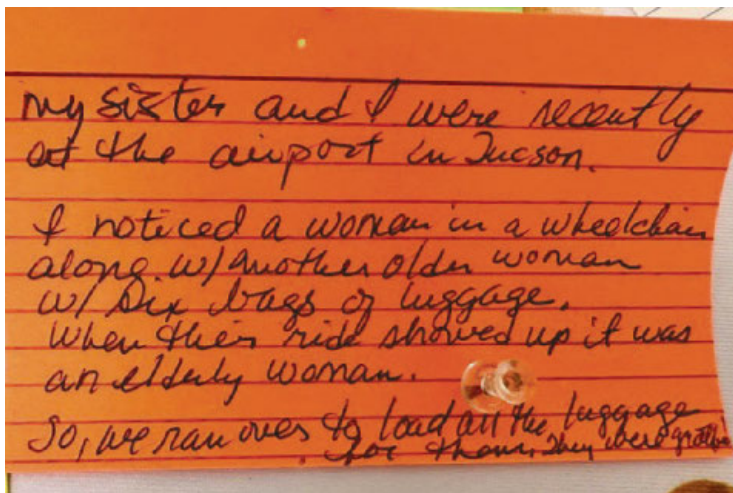 my sister and I were recently
at the airport in Tucson.
I noticed a woman in a wheelchair
along w/ another older woman
w/ six bags of luggage.
When their ride showed up it was
an elderly woman.
So, we ran over to load all the luggage
for them. They were grateful